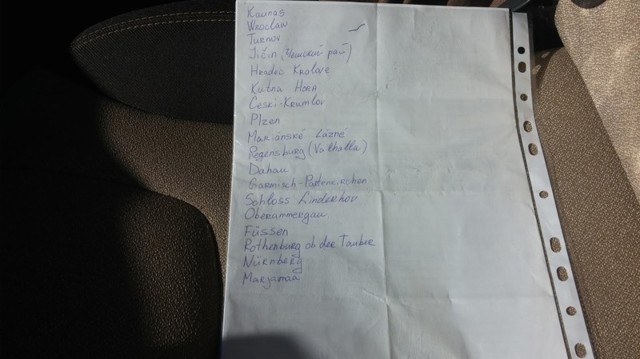 Kaunas
Wrocław
Turnov
Jičin (Чешский рай)
Hradec Kralove
Kutna Hora
Česki-Krumlov
Plzen
Marianské Lázně
Regensburg (Valhalla)
Dahau
Garmisch-Partenkirchen
Schloss Linderhov
Oberammergau
Füssen
Rothenburg ob der Tauber
Nürnberg